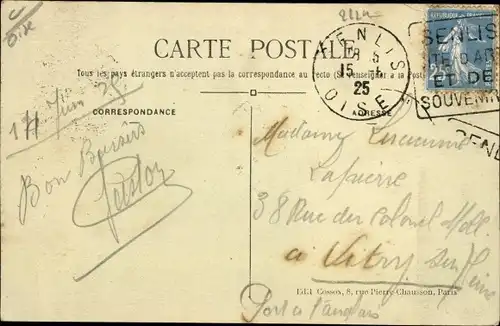 Oise
2224
CARTE POSTALE
Tous les pays étrangers n'acceptent pas la correspondance au recto (Se renseigner à la Poste)
CORRESPONDANCE
ADRESSE
SENLIS
15
25
OISE
SENLIS
ET DE
SOUVENIR
Juin 25
Bon Baisers
Gaston
Madame
Lapierre
38 Rue du Colonel Moll
a Vitry Sur Seine
Port à l'anglais
Edit Cossox, 8, rue Pierre-Chausson, Paris